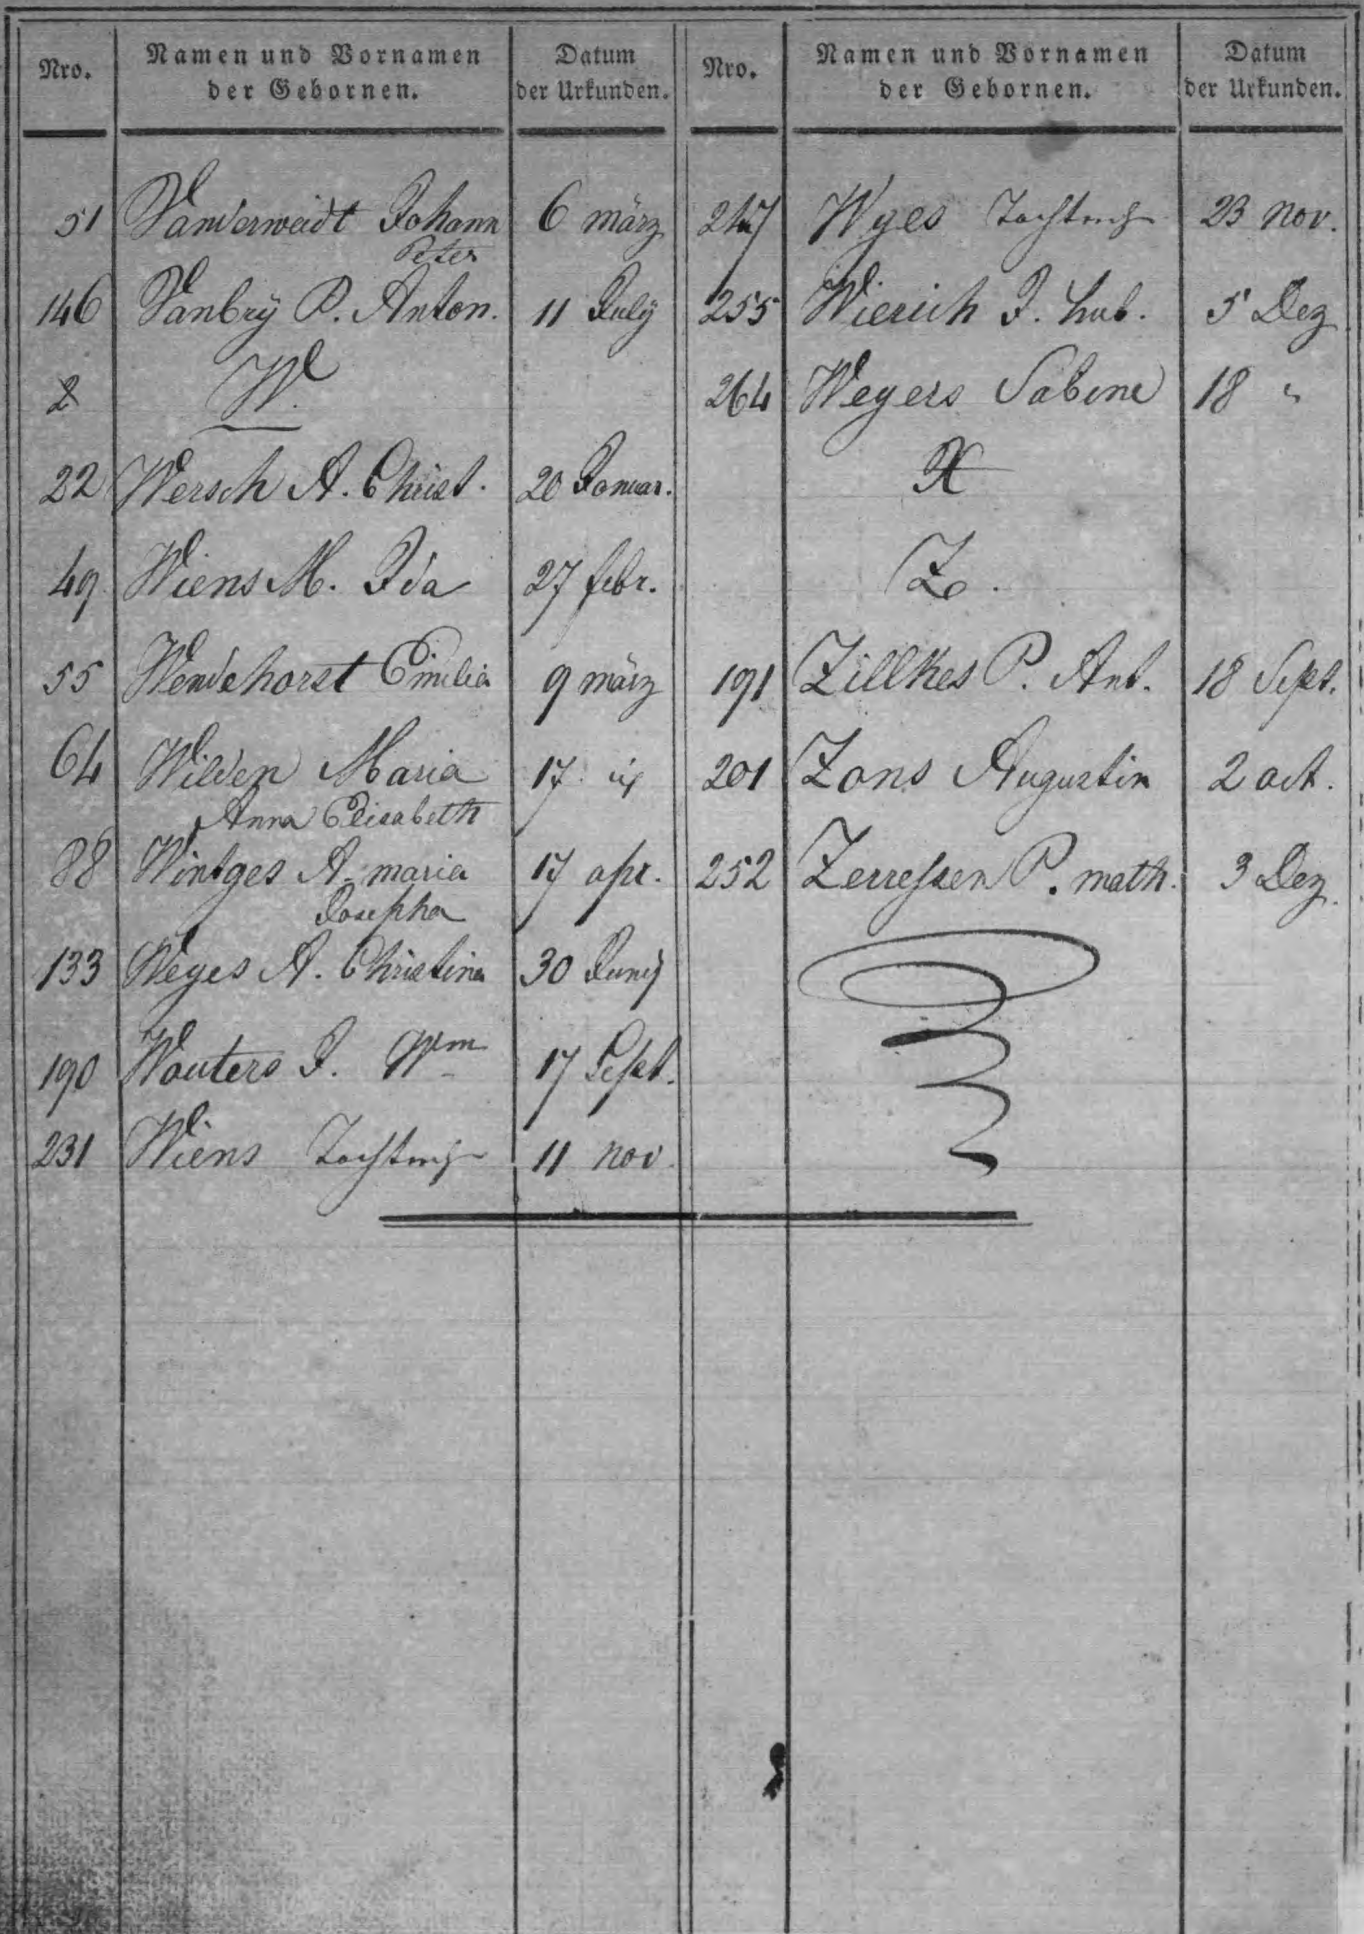 Nro.
Namen und Vornamen
der Gebornen.
Datum
der Urkunden.
51 Vanderweidt Johann 6 märz
Peter
146 Vanbry P. Anton. 11 July
2
W.
22 Wersch A. Christ. 20 Januar.
49 Wiens M. Ida 27 febr.
55 Wendehorst Emilia 9 märz
64 Wilden Maria 17
Anna Elisabeth
88 Wintges A. maria 17 apr.
Josepha
133 Weyes A. Christina 30 Juny
190 Wouters J. Wm 17 Sept.
231 Wiens 11 nov.
Nro.
Namen und Vornamen
der Gebornen.
Datum
der Urkunden.
247 Wyes 23 nov.
255 Wierich J. hub. 5 Dez
264 Weyers Sabine 18 "
X
Z.
191 Zillkes P. Ant. 18 Sept.
201 Zons Augustin 2 oct.
252 Zerressen P. math. 3 Dez.